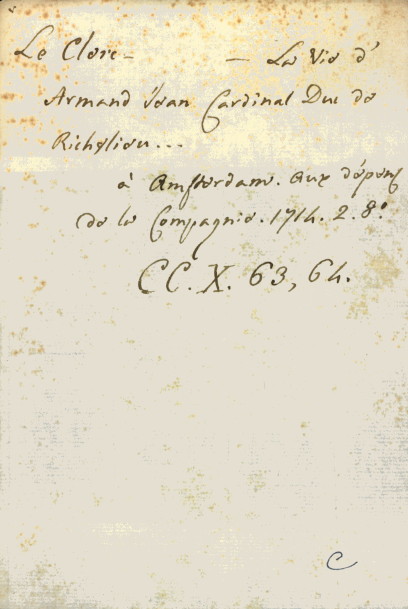 Le Clerc — — La Vie d'
Armand Jean Cardinal Duc de
Richelieu...
à Amsterdam. aux dépens
de la Compagnie. 1714. 2. 8.°
CC. X. 63, 64.
C